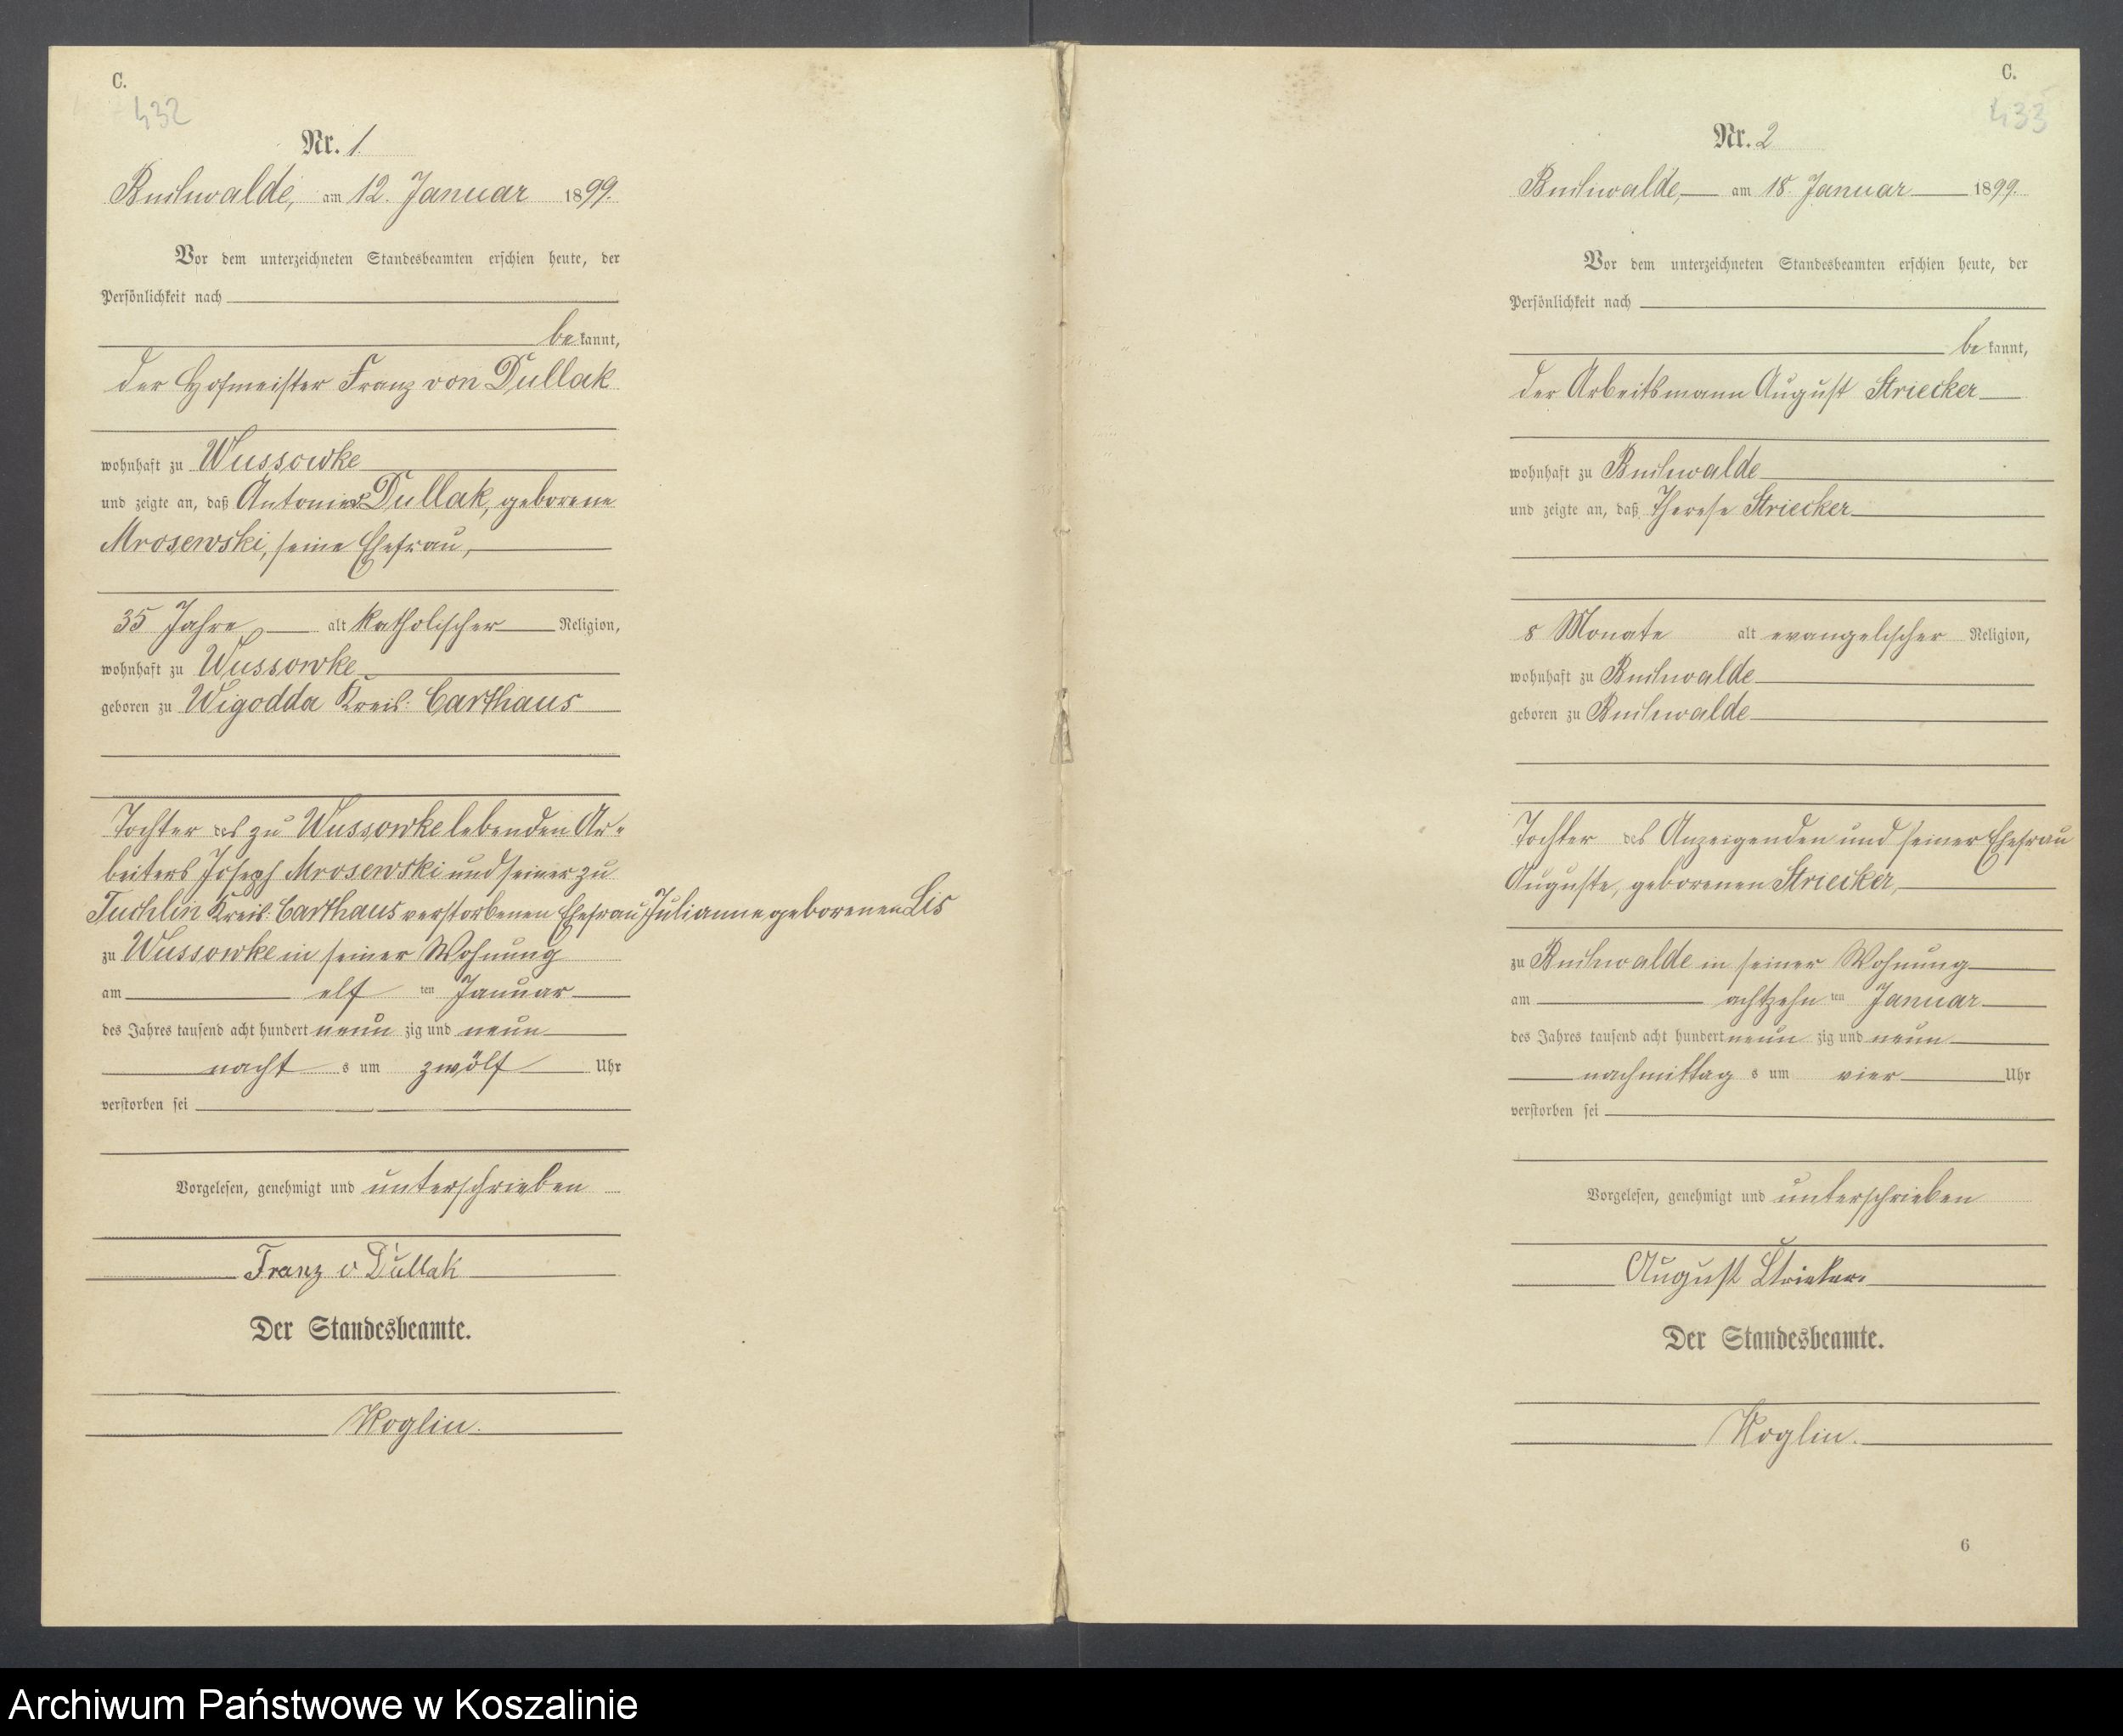 C.
432
Nr. 1.
Buchwalde, am 12. Januar 1899.
Vor dem unterzeichneten Standesbeamten erschien heute, der
Persönlichkeit nach
bekannt,
der Hofmeister Franz von Dullak
wohnhaft zu Wussowke
und zeigte an, daß Antonie v Dullak, geborene
Mrosewski, seine Ehefrau,
35 Jahre alt katholischer Religion,
wohnhaft zu Wussowke
geboren zu Wigodda Kreis: Carthaus
Tochter des zu Wussowke lebenden Ar-
beiters Joseph Mrosewski und seiner zu
Tuchlin Kreis: Carthaus verstorbenen Ehefrau Julianne geborenen Lis
zu Wussowke in seiner Wohnung
am elf ten Januar
des Jahres tausend acht hundert neun zig und neun
nacht s um zwölf Uhr
verstorben sei
Vorgelesen, genehmigt und unterschrieben
Franz v Dullak
Der Standesbeamte.
Koglin.
C.
433
Nr. 2
Buchwalde, am 18. Januar 1899.
Vor dem unterzeichneten Standesbeamten erschien heute, der
Persönlichkeit nach
bekannt,
der Arbeitsmann August Striecker
wohnhaft zu Buchwalde
und zeigte an, daß Therese Striecker
8 Monate alt evangelischer Religion,
wohnhaft zu Buchwalde
geboren zu Buchwalde
Tochter des Anzeigenden und seiner Ehefrau
Auguste, geborenen Striecker,
zu Buchwalde in seiner Wohnung
am achtzehn ten Januar
des Jahres tausend acht hundert neun zig und neun
nachmittag s um vier Uhr
verstorben sei
Vorgelesen, genehmigt und unterschrieben
August Strieker.
Der Standesbeamte.
Koglin.
6
Archiwum Państwowe w Koszalinie